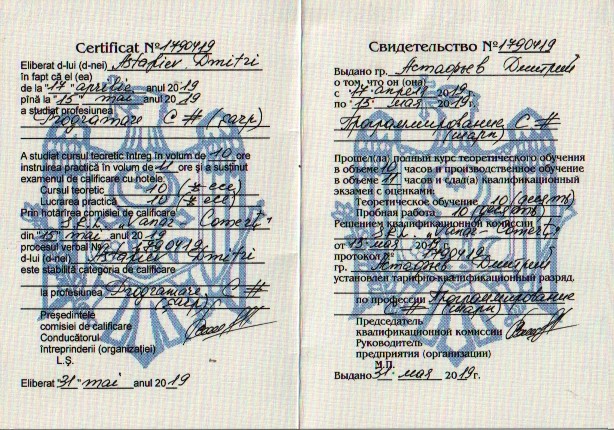 Certificat №1790419
Eliberat d-lui (d-nei) Astafiev Dmitri
în fapt că el (ea)
de la "17" aprilie anul 2019
pînă la "15" mai anul 2019
a studiat profesiunea
Programare C # (carp)
A studiat cursul teoretic întreg în volum de 10 ore
instruirea practică în volum de 11 ore şi a susţinut
examenul de calificare cu notele:
Cursul teoretic 10 (zece)
Lucrarea practică 10 (zece)
Prin hotărîrea comisiei de calificare
S.R.L. "Comerț"
din "15" mai anul 2019
procesul verbal № 1790419
d-lui (d-nei) Astafiev Dmitri
este stabilită categoria de calificare
la profesiunea Programare C #
Preşedintele
comisiei de calificare
Conducătorul
întreprinderii (organizaţiei)
L.Ş.
Eliberat "31" mai anul 2019
Свидетельство №1790419
Выдано гр. Астафьев Дмитрий
о том, что он (она)
с "17" апреля 2019г.
по "15" мая 2019г.
Программирование C #
(шарп)
Прошел(ла) полный курс теоретического обучения
в объеме 10 часов и производственное обучение
в объеме 11 часов и сдал(а) квалификационный
экзамен с оценками:
Теоретическое обучение 10 (десять)
Пробная работа 10 (десять)
Решением квалификационной комиссии
S.R.L.
от 15 мая 2019
протокол № 1790419
гр. Астафьев Дмитрий
установлен тарифно-квалификационный разряд.
по профессии Программирование
C # (шарп)
Председатель
квалификационной комиссии
Руководитель
предприятия (организации)
М.П.
Выдано 31 мая 2019г.